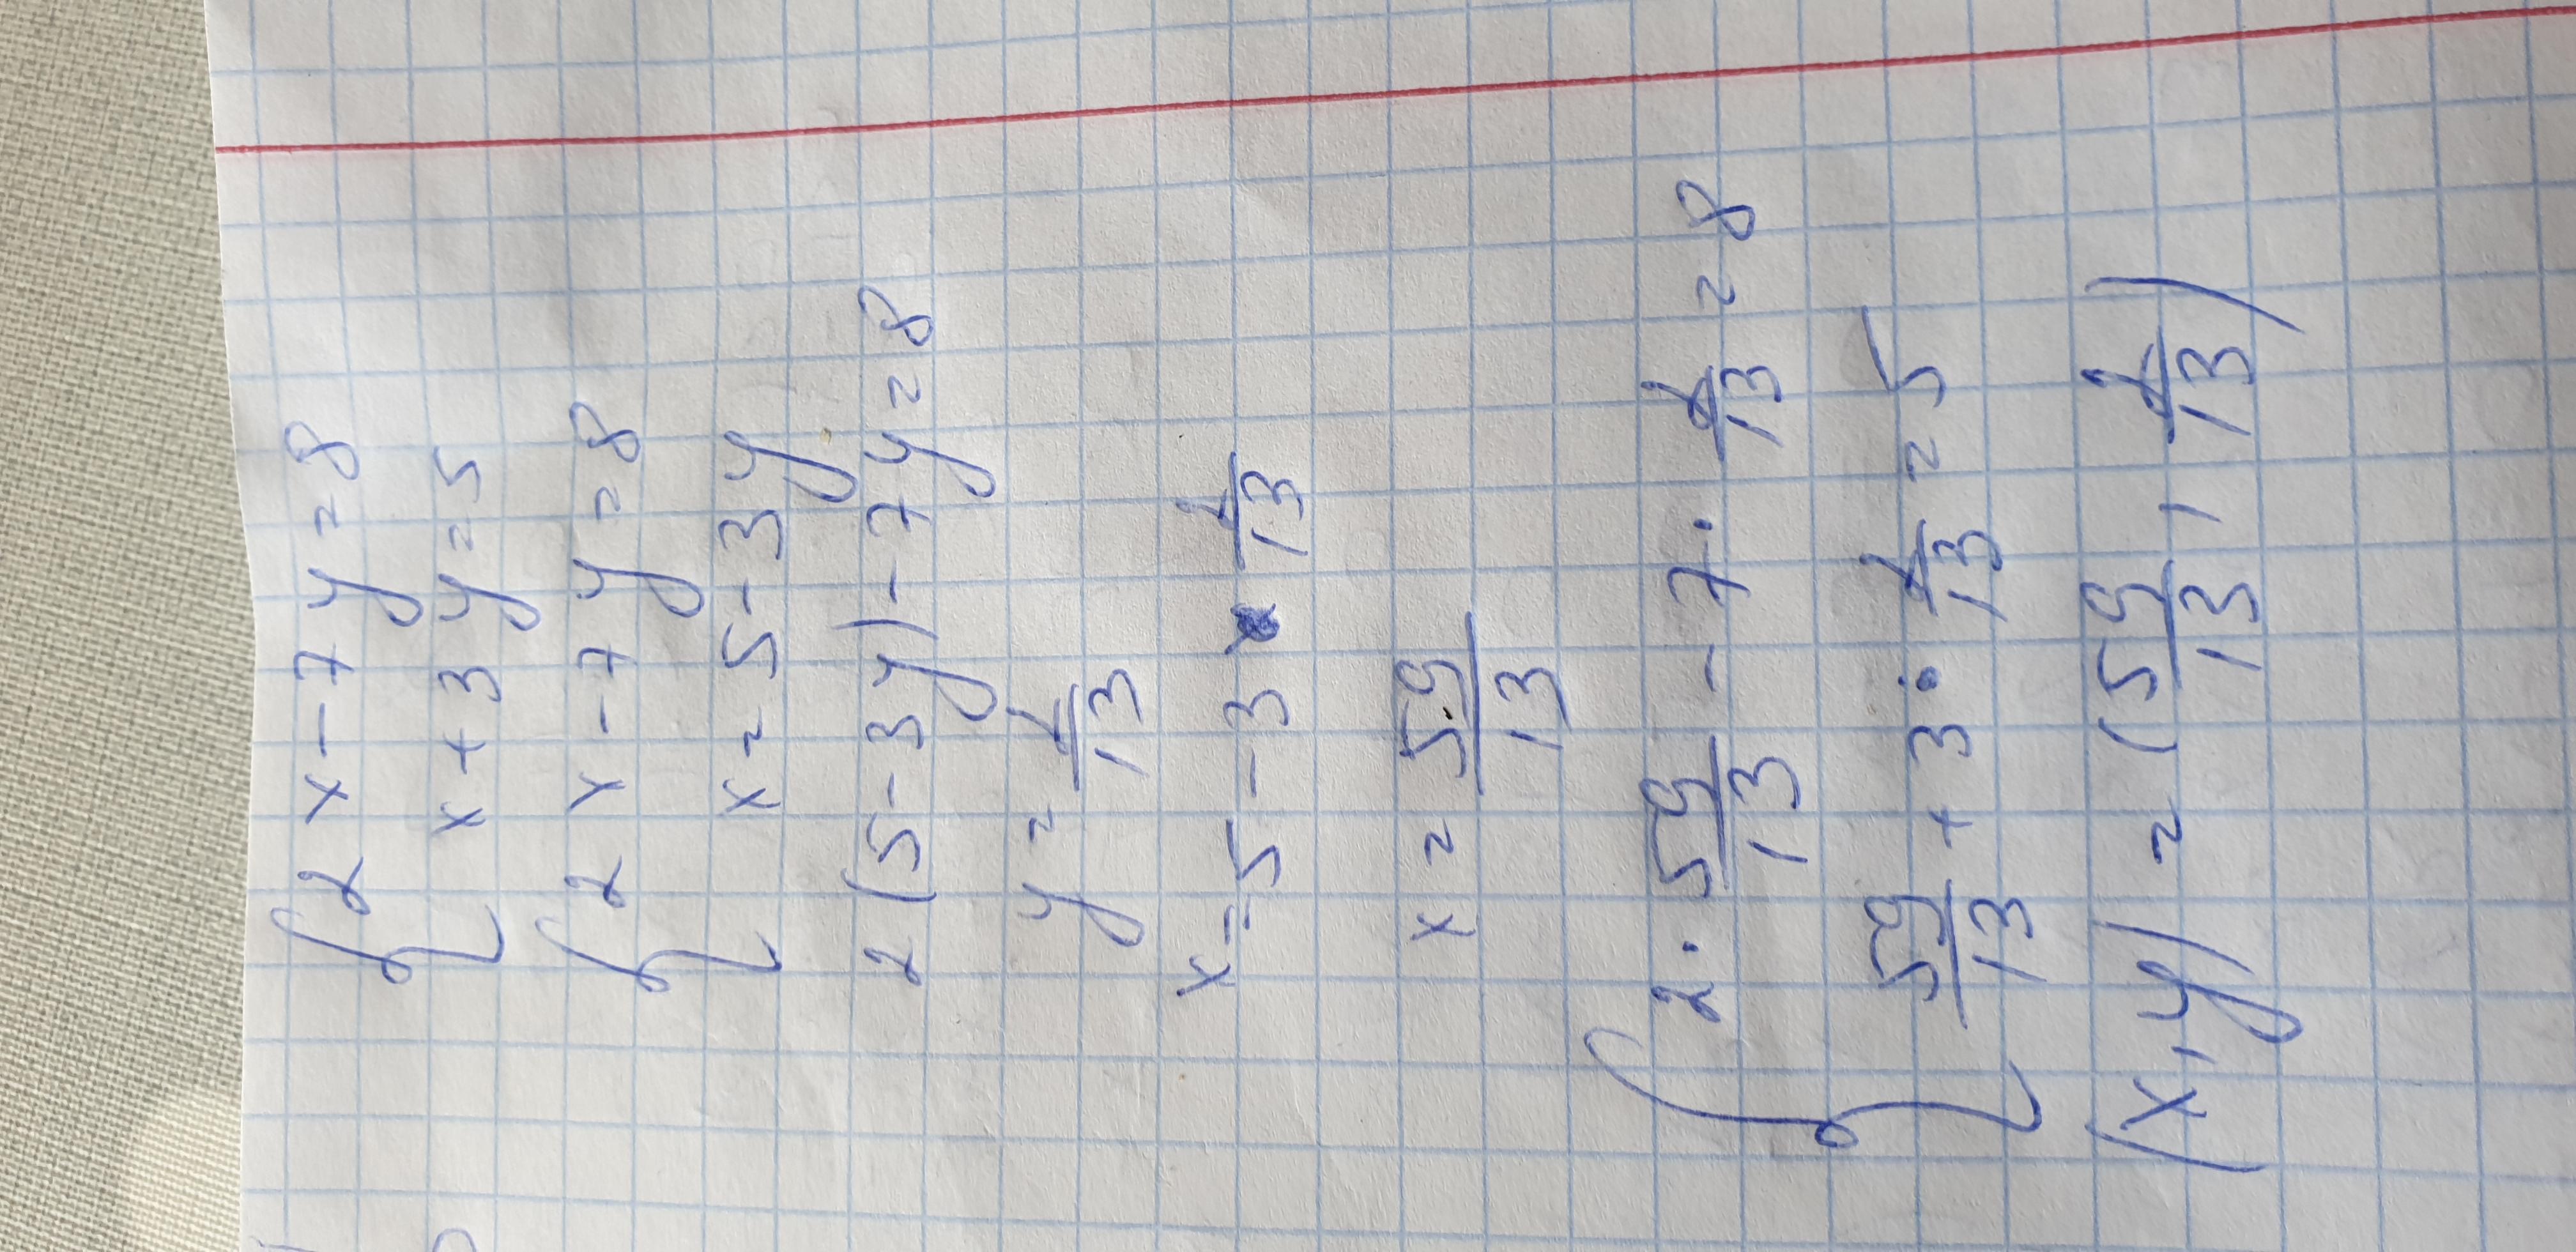 { 2x - 7y = 8
x + 3y = 5
{ 2x - 7y = 8
x = 5 - 3y
2(5 - 3y) - 7y = 8
y = 2/13
x = 5 - 3 · 2/13
x = 59/13
{ 2 · 59/13 - 7 · 2/13 = 8
59/13 + 3 · 2/13 = 5
(x, y) = (59/13, 2/13)